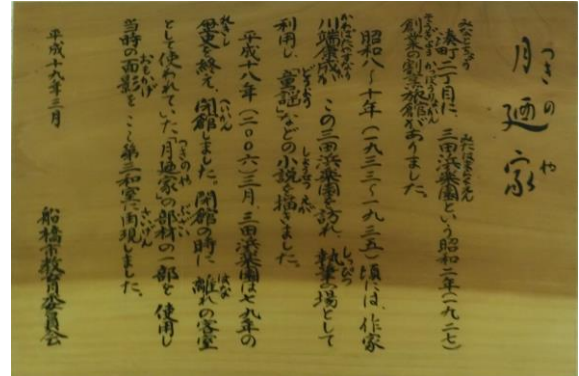 月廼家
つきのや
湊町二丁目に、三田浜楽園という昭和二年(一九二七)
創業の割烹旅館がありました。
昭和八〜十年(一九三三〜一九三五)頃には、作家
川端康成が この三田浜楽園を訪れ、執筆の場として
利用し、「童謡」などの小説を描きました。
平成十八年(二〇〇六)三月、三田浜楽園は七九年の
歴史を終え、閉館しました。閉館の時に、離れの客室
として使われていた「月廼家」の部材の一部を 使用し
当時の面影を ここ第三和室に再現しました。
平成十九年三月
船橋市教育委員会